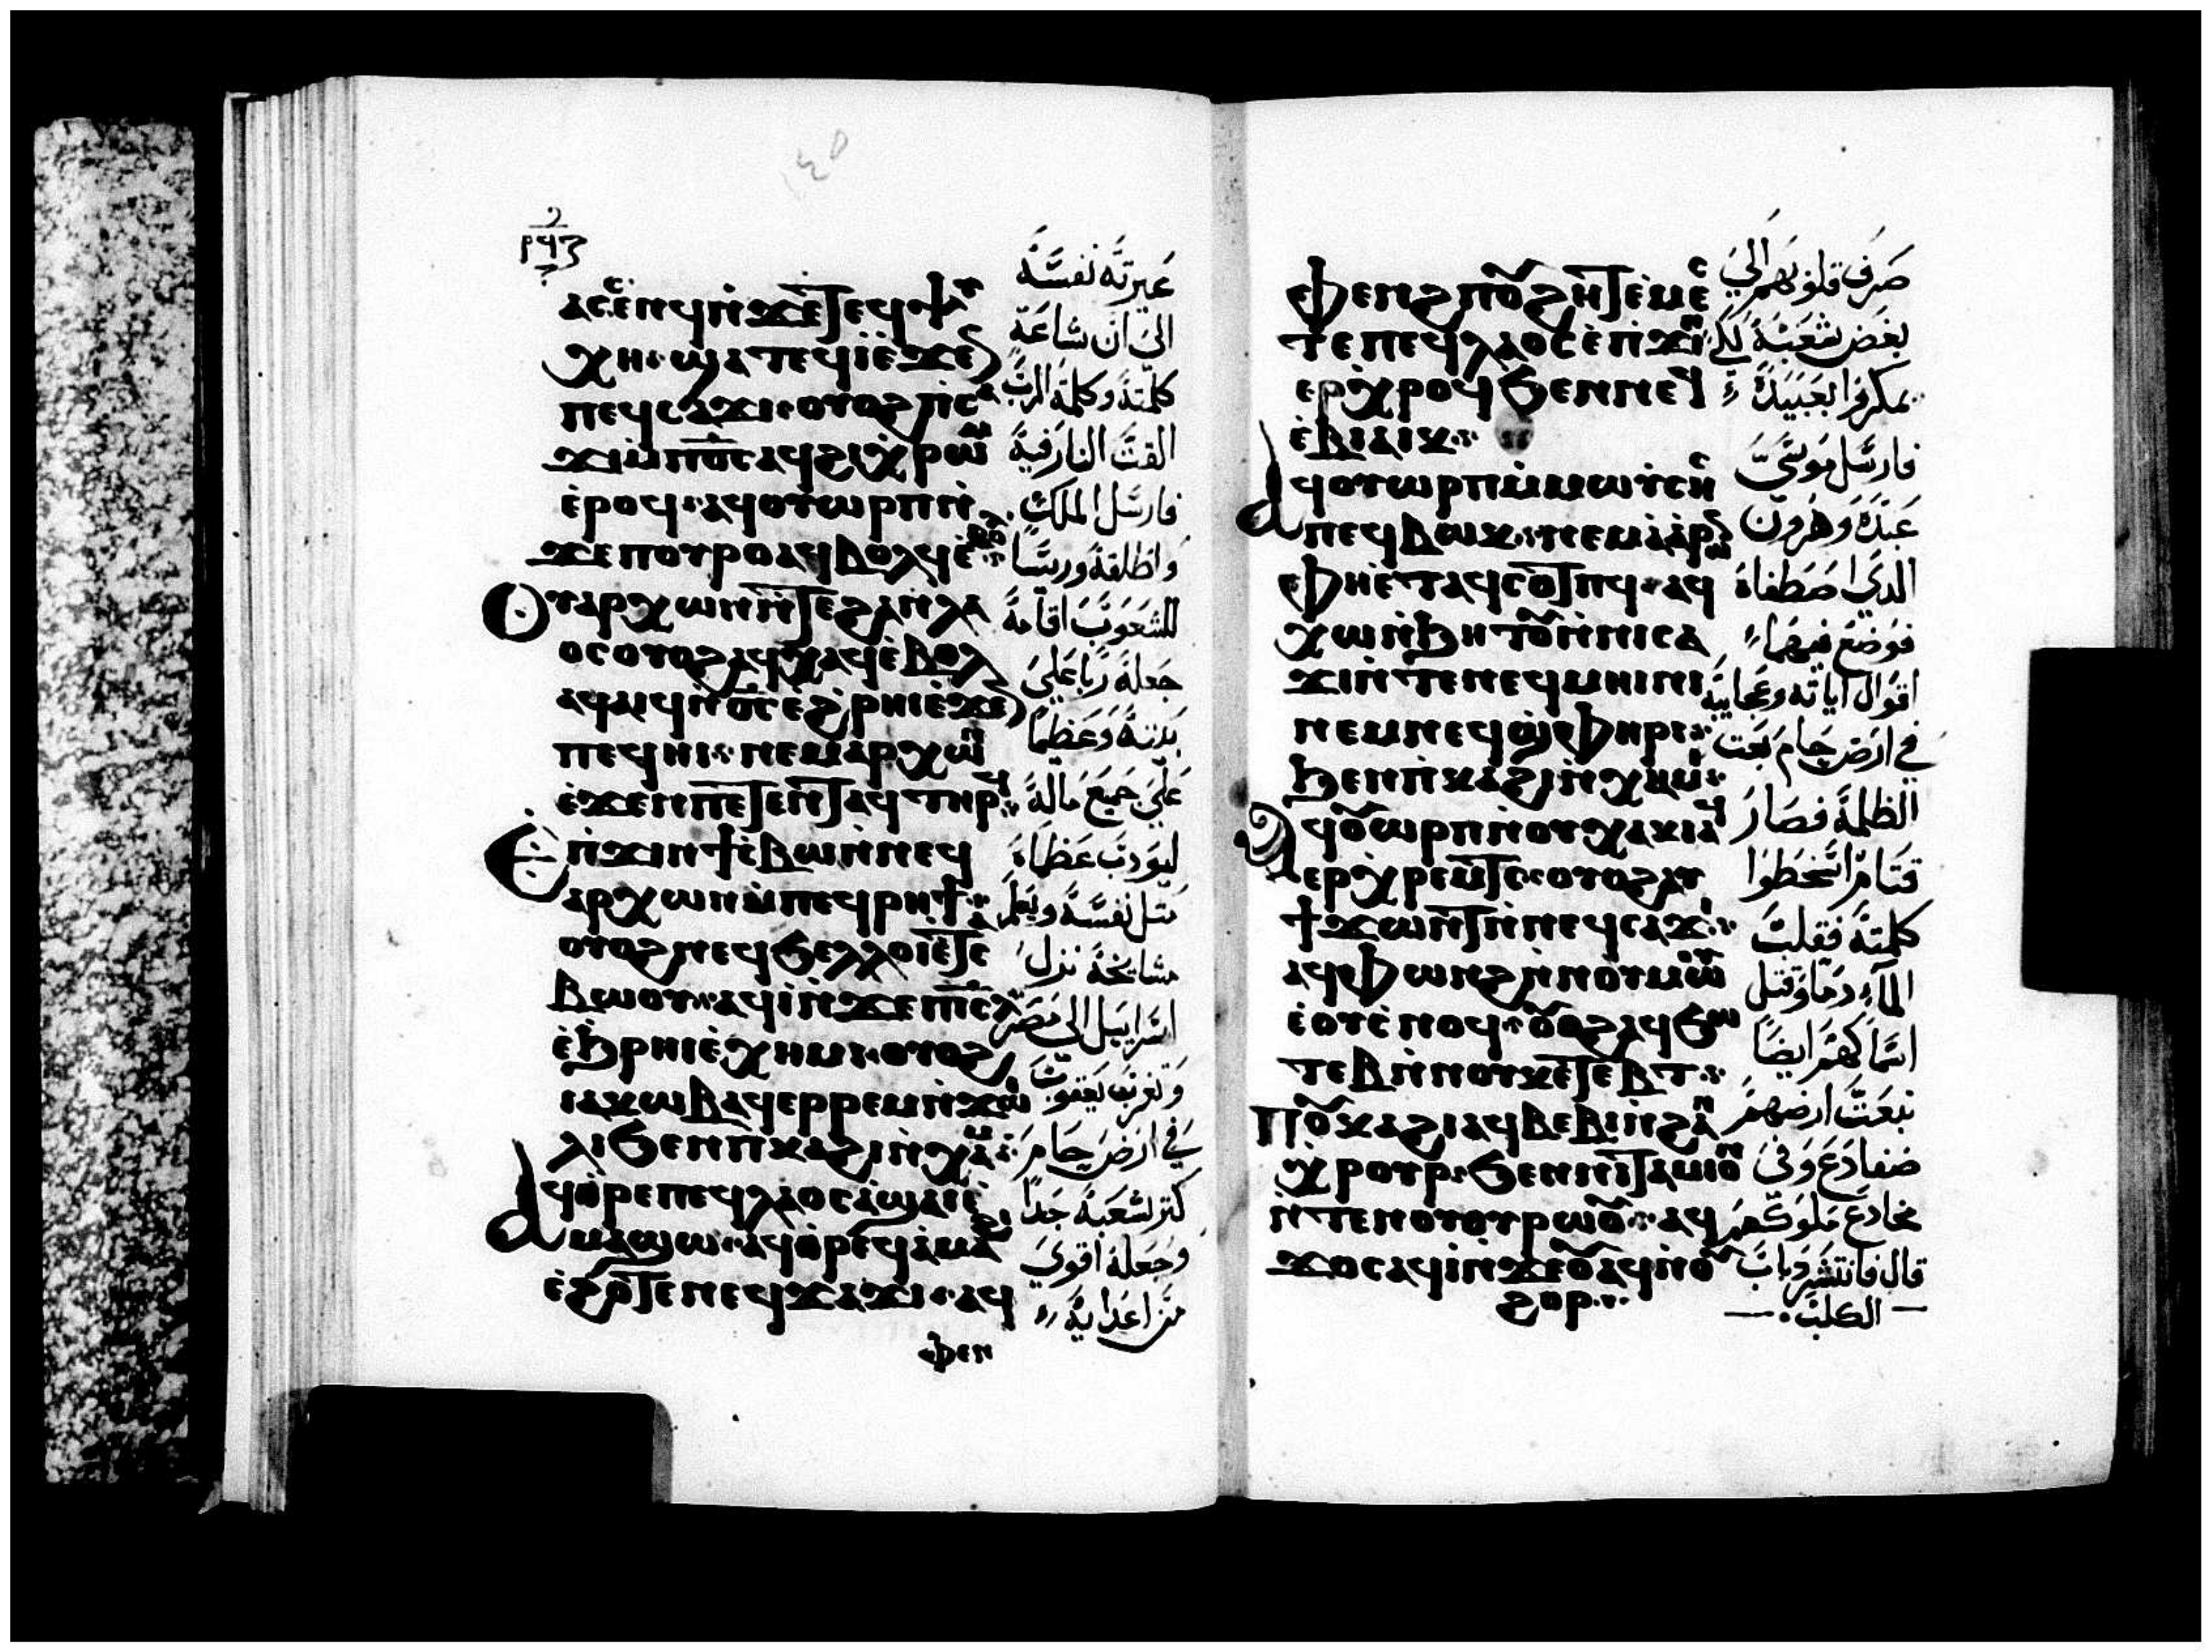 ⲣϥⲍ
ⲁⲥⲥⲉⲛϥⲛ̀ϫⲉ̀ⲧⲉϥⲯⲩ
ⲭⲏ ϣⲁⲧⲉϥⲓ̀ⲉ̀ϫⲉⲛ
ⲡⲉϥⲥⲁϫⲓ ⲟⲩⲟϩ ⲡ̀ⲥⲁ
ϫⲓⲙ̀ⲡⲟ̅ⲥ̅ⲁϥϩⲓⲭ̀ⲣⲱⲙ
ⲉ̀ⲣⲟϥ ⲁϥⲟⲩⲱⲣⲡⲛ̀
ϫⲉⲡⲟⲩⲣⲟⲁϥⲃⲟⲗϥⲉ̀ⲃⲟⲗ
ⲟⲩⲁⲣⲭⲱⲛⲛ̀ⲧⲉϩⲁⲛⲗⲁ
ⲟⲥⲟⲩⲟϩⲁϥⲭⲁϥⲉ̀ⲃⲟⲗ
ⲁϥⲁⲓϥⲛ̀ⲟ̅ⲥ̅ⲉ̀ϩ̀ⲣⲏⲓⲉ̀ϫⲉⲛ
ⲡⲉϥⲏⲓ ⲛⲉⲙⲁⲣⲭⲱⲛ
ⲉ̀ϫⲉⲛⲡⲉⲧⲉⲛ̀ⲧⲁϥⲧⲏⲣϥ
ⲉ̀ⲡ̀ϫⲓⲛϯⲥ̀ⲃⲱⲛ̀ⲛⲉϥ
ⲁⲣⲭⲱⲛⲙ̀ⲡⲉϥⲣⲏϯ
ⲟⲩⲟϩⲛⲉϥϧⲉⲗⲗⲟⲓⲉ̀ⲧⲥ
ⲃⲱⲟⲩ ⲁϥⲓ̀ⲛ̀ϫⲉⲡⲓ̅ⲥ̅ⲗ̅
ⲉ̀ϧ̀ⲣⲏⲓⲉ̀ⲭⲏⲙⲓ ⲟⲩⲟϩ
ⲓⲁⲕⲱⲃⲁϥⲉⲣⲣⲉⲙⲛ̀ϫⲱⲓ
ⲗⲓϧⲉⲛⲡ̀ⲕⲁϩⲓⲛ̀ⲭⲁⲙ
ⲁϥⲑ̀ⲣⲉⲡⲉϥⲗⲁⲟⲥⲁ̀ϣⲁⲓⲉ̀
ⲙⲁϣⲱ ⲁϥⲑ̀ⲣⲉϥⲁ̀ⲙⲁϩⲓ
ⲉ̀ϩⲟ̀ⲧⲉⲛⲉϥϫⲁϫⲓ ⲁϥ
ⲫⲉⲛ
عَبَرتَه نَفسَهُ
الىَ ان سَاعَةَ
كلمَتهُ وكلمَة الربَ
القتَ النارَ فيهَ
فارسَل الملك
واطلقهُ ورَيسًا
للشعَوبَ اقامهُ
جَعلهَ ربًا عَليَ
بَيتهُ وَعَظيمًا
عَليَ جَميعَ مالهُ
ليوَدبَ عَظماه
مثل نفسَهُ ويعَلم
مشايخهُ نزل
اسَرايَيل الىَ مَصَر
وَتغرَبَ يَعقوبَ
فيَ ارَض حَامَ
كثر شعَبَهُ جَدًا
وجَعلهُ اقويَ
مَنَ اعَدايهُ
ⲫⲉⲛϩⲡⲟⲩϩⲏⲧⲉ̀ⲙⲉⲥ
ⲧⲉⲡⲉϥⲗⲁⲟⲥⲉ̀ⲡ̀ϫⲓⲛ
ⲉⲣⲭⲣⲟϥϧⲉⲛⲛⲉϥ
ⲉ̀ⲃⲓⲁⲓⲕ
ⲁϥⲟⲩⲱⲣⲡⲙ̀ⲙⲱⲩⲥⲏⲥ
ⲡⲉϥⲃⲱⲕ ⲛⲉⲙⲁⲁⲣⲱⲛ
ⲫⲏⲉ̀ⲧⲁϥⲥⲟⲧⲡϥ ⲁϥ
ⲭⲱⲛ̀ϧⲏⲧⲟⲩⲛ̀ⲛⲓⲥⲁ
ϫⲓⲛ̀ⲧⲉⲛⲉϥⲙⲏⲓⲛⲓ
ⲛⲉⲙⲛⲉϥϣ̀ⲫⲏⲣⲓ
ϧⲉⲛⲡ̀ⲕⲁϩⲓⲛ̀ⲭⲏⲙⲓ
ⲁϥⲟⲩⲱⲣⲡⲛ̀ⲟⲩⲭⲁⲕⲓⲁϥ
ⲉⲣⲭ̀ⲣⲉⲙⲧⲥ ⲟⲩⲟϩⲁⲩ
ϯϫⲱⲛⲧⲛ̀ⲛⲉϥⲥⲁϫⲓ
ⲁϥⲫⲱⲛϩⲛ̀ⲛⲟⲩⲙⲱⲟⲩ
ⲉⲟⲩⲥ̀ⲛⲟϥ ⲟⲩⲟϩⲁϥϧⲱ
ⲧⲉⲃⲛ̀ⲛⲟⲩⲕⲉⲧⲉⲃⲧ
ⲡⲟⲩⲕⲁϩⲓⲁϥⲃⲉⲃⲓⲛ̀ϩⲁⲛ
ⲭ̀ⲣⲟⲩⲣ ϧⲉⲛⲛⲓⲧⲁⲙⲓⲟⲛ
ⲛ̀ⲧⲉⲛⲟⲩⲟⲩⲣⲱⲟⲩ ⲁϥ
ϫⲟⲥⲁϥⲓ̀ⲛ̀ϫⲉⲟⲩⲁϥⲛ̀ⲟⲩ
ϩⲟⲣ
صَرَفَ قلوَبهَم اليَ
بغَض شعَبَهُ لكي
يمَكروَا بعَبيَدهُ
فارسَل مَوسَيَ
عَبَدَهُ وَهَرونَ
الذيَ اصَطفاهُ
فوَضَعَ فيهَما
اقوَال اياتهُ وعَجايبَهُ
فيَ ارَض حَام بَعَث
الظلمةَ فصَارَ
قتَامًا اسَخطوَا
كلمَتهَ فقلبَ
المآء دَما وقتل
اسَماكهَم ايضًا
نبَعَتَ ارضهمَ
ضفادَعَ وَفىَ
مخادَعَ مَلوَكهمَ
قال فانتشَر دَبابَ
الكلبَ